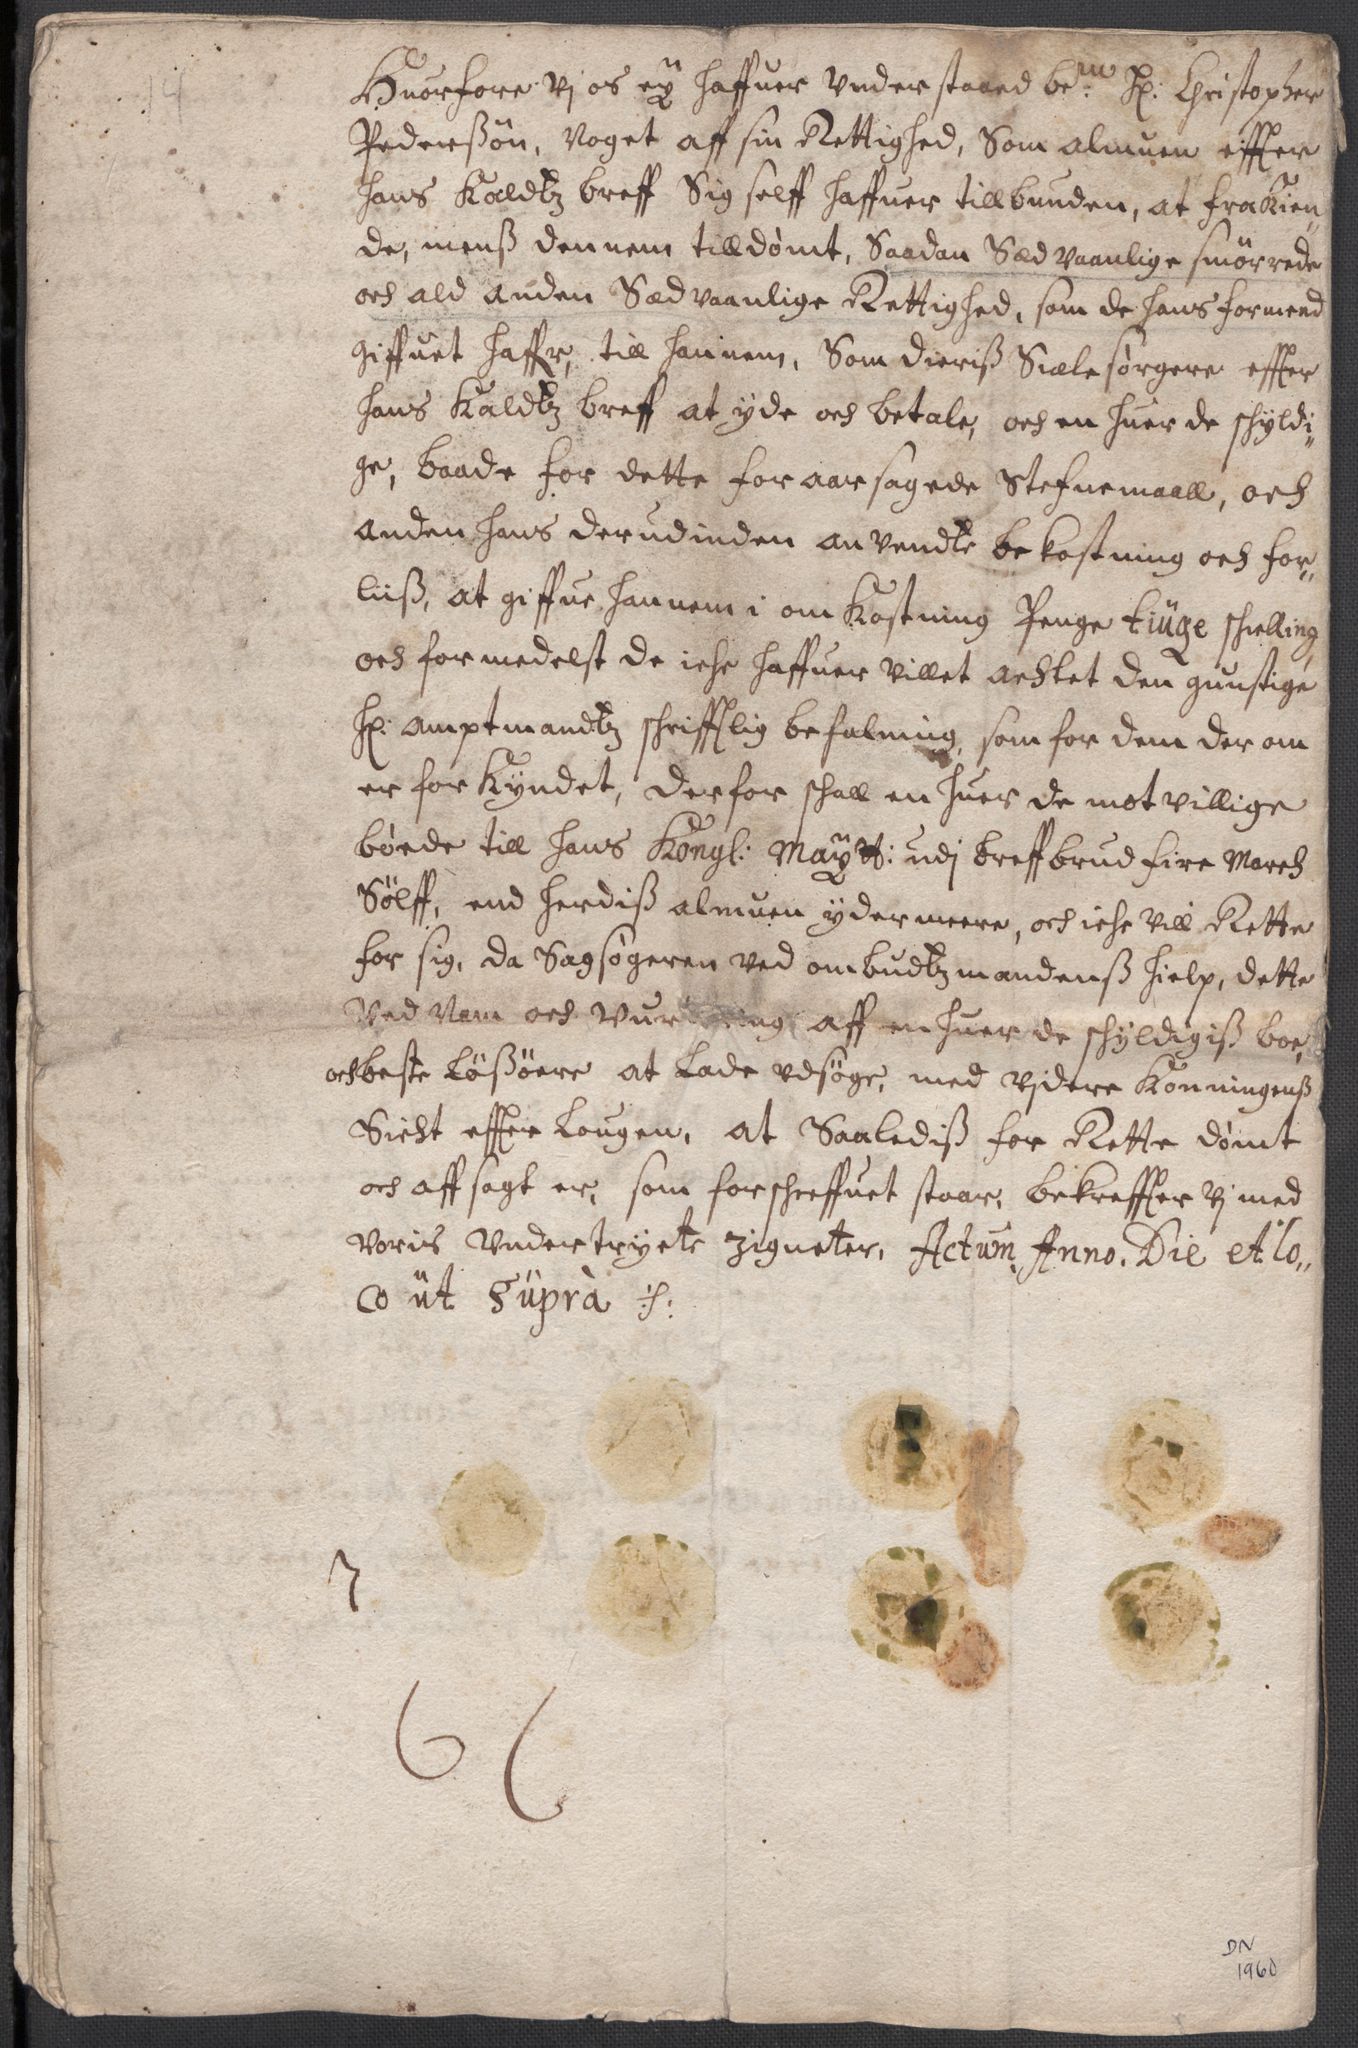 14
Huorfore vj os eÿ haffuer understaaed be:m H: Christopher
Pederßön, noget aff sin Rettighed, Som almuen effter
hans Kaldtz breff Sig selff haffuer tillbunden, at fraKien„
de, menß dennem tilldømt, Saadan Sædvaanlige smörrede
och ald anden Sædvaanlige Rettighed, som de hans formend
giffuet haffr, till hannem, Som dieriß Siæle sørgere effter
hans Kaldtz breff at ÿde och betale, och en huer de schÿldi„
ge, baade for dette foraarsagede Stefnemaall, och
anden hans derudinden anvendte bekostning och for„
liiß, at giffue hannem i omKostning Penge tiüge schielling,
och formedelst de iche haffuer villet achtet den gunstige
H: Amptmandtz schrifftlig befalning, som for dem der om
er forKÿndet, derfor schall en huer de motvillige
bøede till hans Kongl: Maÿtt: udj breffbrud fire March
Sölff, end herdiß almuen ÿdermeere, och iche vill Rette
for sig, da Sagsøgeren ved ombudtzmandenß hielp, dette
Ved Nam och Vurdering aff en huer de schÿldigiß boe,
och beste Lößöere at Lade udsøge, med vjdere Konningenß
Sicht effter Lougen, at Saalediß for Rette dømt
och affsagt er, som forschreffuet staar, bekreffter vj med
voris undertrÿcte zigneter, Actum, Anno, Die et lo„
co üt Süprà :/:
7
6 6
DN
1960